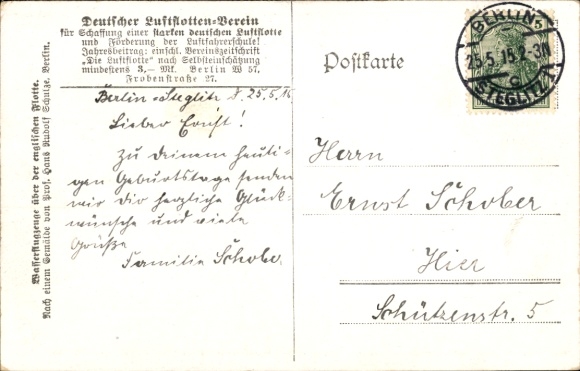 Deutscher Luftflotten-Verein
für Schaffung einer starken deutschen Luftflotte
und Förderung der Luftfahrerschule!
Jahresbeitrag: einschl. Vereinszeitschrift
"Die Luftflotte" nach Selbsteinschätzung
mindestens 3,— Mk. Berlin W 57,
Frobenstraße 27.
Berlin-Steglitz 25.5.16
Lieber Ernst!
Zu deinem heuti-
gen Geburtstage senden
wir dir herzliche Glück-
wünsche und viele
Grüße
Familie Schober
Wasserflugzeuge über der englischen Flotte.
Nach einem Gemälde von Prof. Hans Rudolf Schulze, Berlin.
Postkarte
BERLIN
25.5.15
STEGLITZ 1
Herrn
Ernst Schober
Hier
Schützenstr. 5